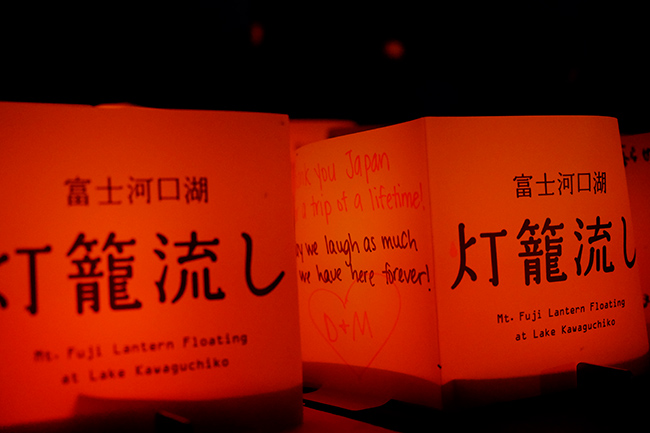 富士河口湖
灯籠流し
Mt. Fuji Lantern Floating
at Lake Kawaguchiko
you Japan
a trip of a lifetime!
we laugh as much
we have here forever!
D+M
富士河口湖
灯籠流し
Mt. Fuji Lantern Floating
at Lake Kawaguchiko